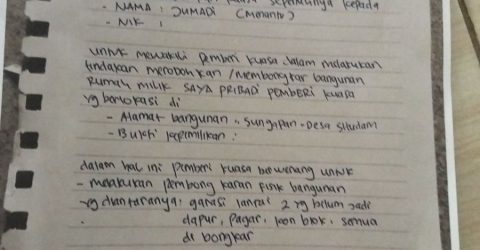 kuasa sepenuhnya kepada
- NAMA : JUMADI (Menantu)
- NIK :
UNTUK Mewakili Pemberi kuasa dalam melakukan
tindakan merobohkan / membongkar bangunan
RUMAH MILIK SAYA PRIBADI PEMBERI kuasa
yg berlokasi di
- Alamat bangunan : Sungapan - Desa
- Bukti kepemilikan :
dalam hal ini Pemberi kuasa berwenang untuk
- melakukan pembongkaran fisik bangunan
yg diantaranya : garasi lantai 2 yg belum jadi
dapur, pagar, kon blok, semua
di bongkar